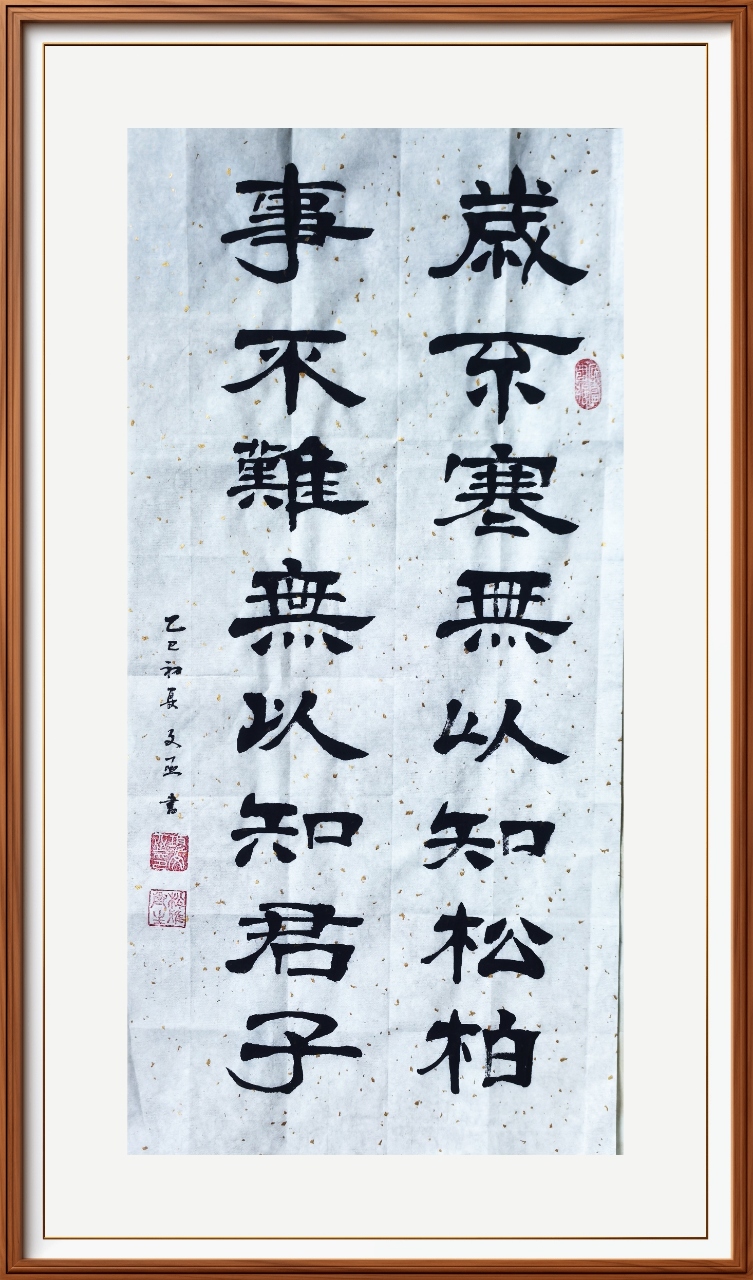 歲不寒無以知松柏
事不難無以知君子
乙巳初夏文亟書